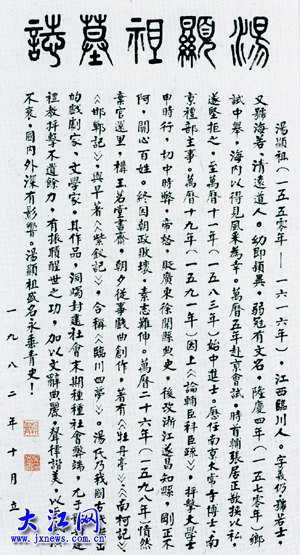 湯顯祖墓誌
湯顯祖(一五五零年——一六一六年),江西臨川人,字義仍,號若士,
又號海若、清遠道人。幼即穎異,弱冠有文名,隆慶四年(一五七零年)鄉
試中舉,海内以得見風采為幸。萬曆五年赴京會試,時首輔張居正數挾以私,
遂堅拒之,至萬曆十一年(一五八三年)始中進士。歷任南京太常寺博士,南
京禮部主事。萬曆十九年(一五九一年)因上《論輔臣科臣疏》,抨擊大學士
申時行,切中時弊,帝怒,貶廣東徐聞縣典史,後改浙江遂昌知縣,剛正不
阿,關心百姓。終因朝政敗壞,素志難伸。萬曆二十六年(一五九八年)憤然
棄官還里,構玉茗堂書齋,朝夕從事戲曲創作,著有《牡丹亭》、《南柯記》、
《邯鄲記》,與早著《紫釵記》,合稱《臨川四夢》。湯氏乃我國古
的戲劇家、文學家。其作品,洞燭封建社會末期種種社會弊端,尤于封建
禮教抨擊不遺餘力,有振聵醒世之功,加以文辭典麗,聲律諧美,以
不衰,國内外深有影響。湯顯祖盛名永垂青史!
一九八二年十月立
大江网